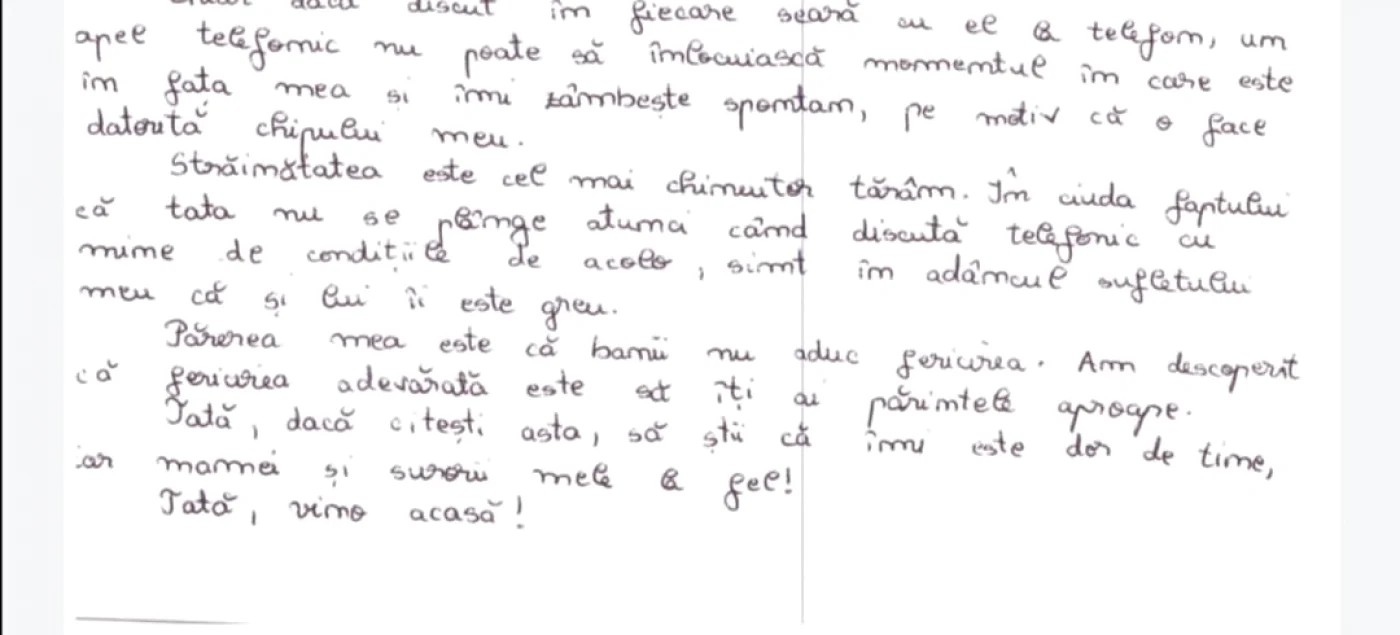 discut în fiecare seară cu el la telefon, un
apel telefonic nu poate să înlocuiască mormentul în care este
în fata mea si îmi zâmbește spontan, pe motiv că o face
datorită chipului meu.
Străinătatea este cel mai chinuitor tărâm. În ciuda faptului
că tata nu se plânge atunci când discută telefonic cu
mine de condițiile de acolo, simt în adâncul sufletului
meu că și lui îi este greu.
Părerea mea este că banii nu aduc fericirea. Am descoperit
că fericirea adevărată este să îți ai părintele aproape.
Tată, dacă citești asta, să știi că îmi este dor de tine,
iar mamei și surorii mele la fel!
Tată, vino acasă!